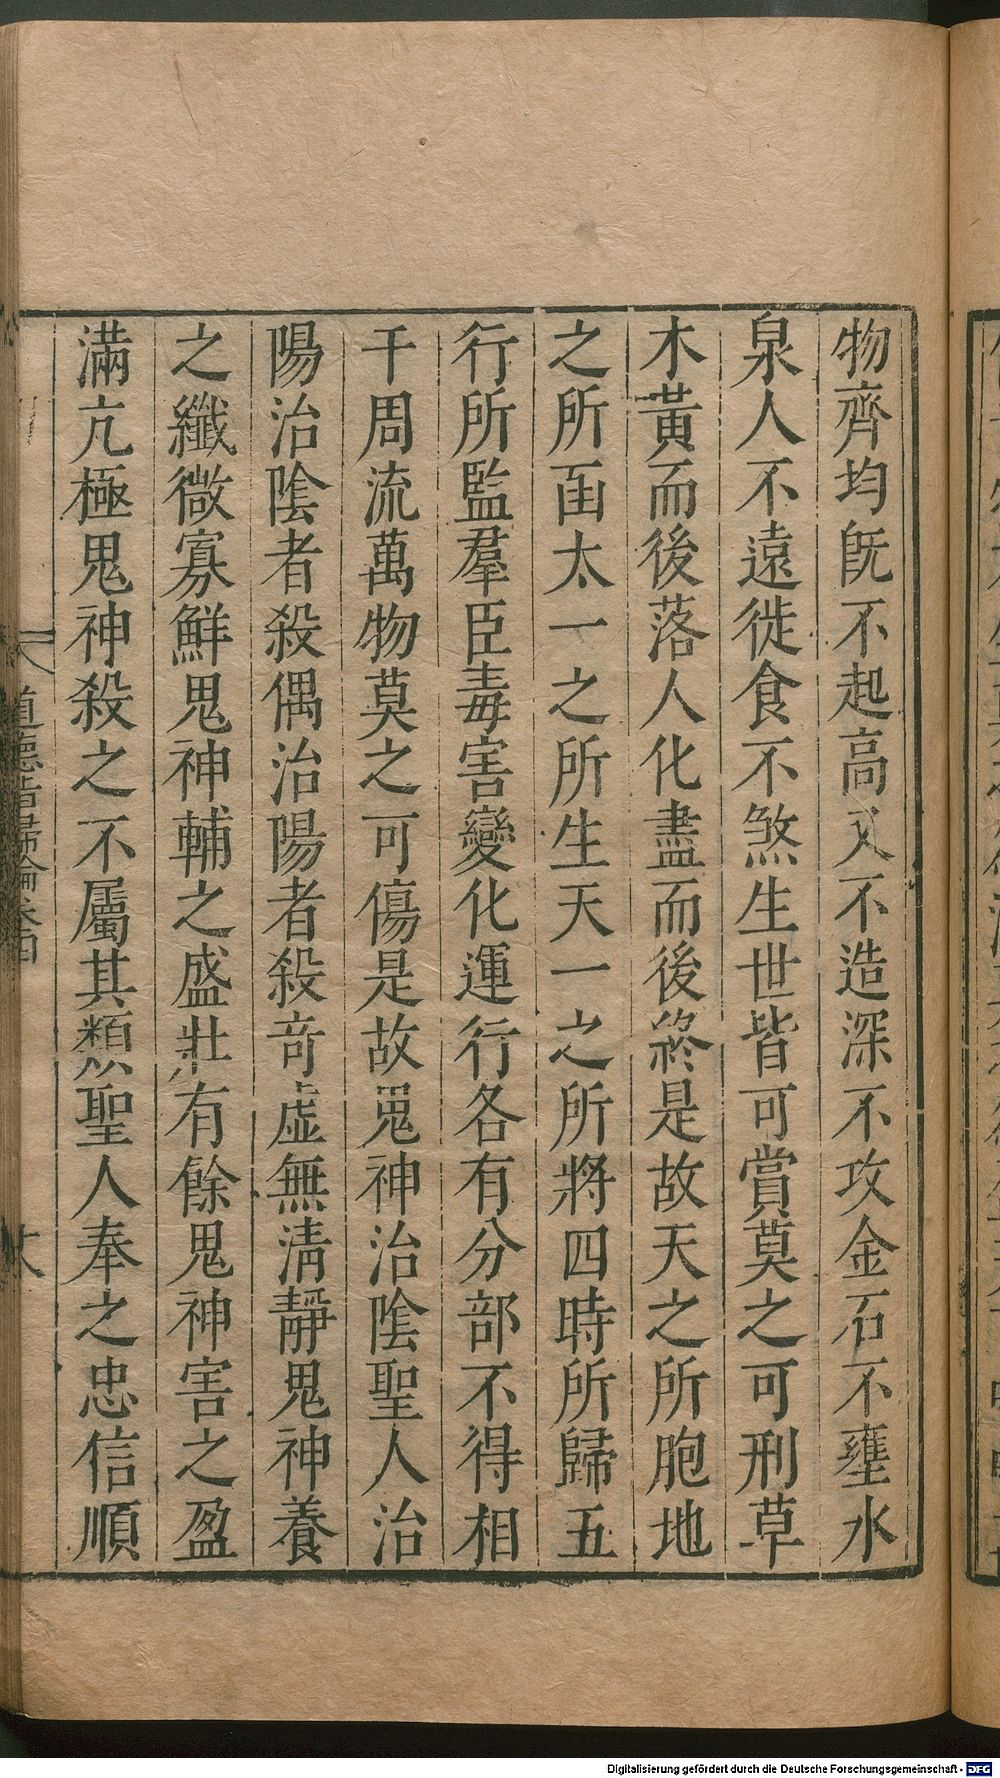 物齊均旣不起高又不造深不攻金石不壅水
泉人不遠徙食不煞生世皆可賞莫之可刑草
木黃而後落人化盡而後終是故天之所胞地
之所函太一之所生天一之所將四時所歸五
行所監羣臣毒害變化運行各有分部不得相
干周流萬物莫之可傷是故䰟神治陰聖人治
陽治陰者殺偶治陽者殺奇虛無淸靜鬼神養
之纖微寡鮮鬼神輔之盛壯有餘鬼神害之盈
滿亢極鬼神殺之不屬其類聖人奉之忠信順
道德指歸論卷四
Digitalisierung gefördert durch die Deutsche Forschungsgemeinschaft - DFG